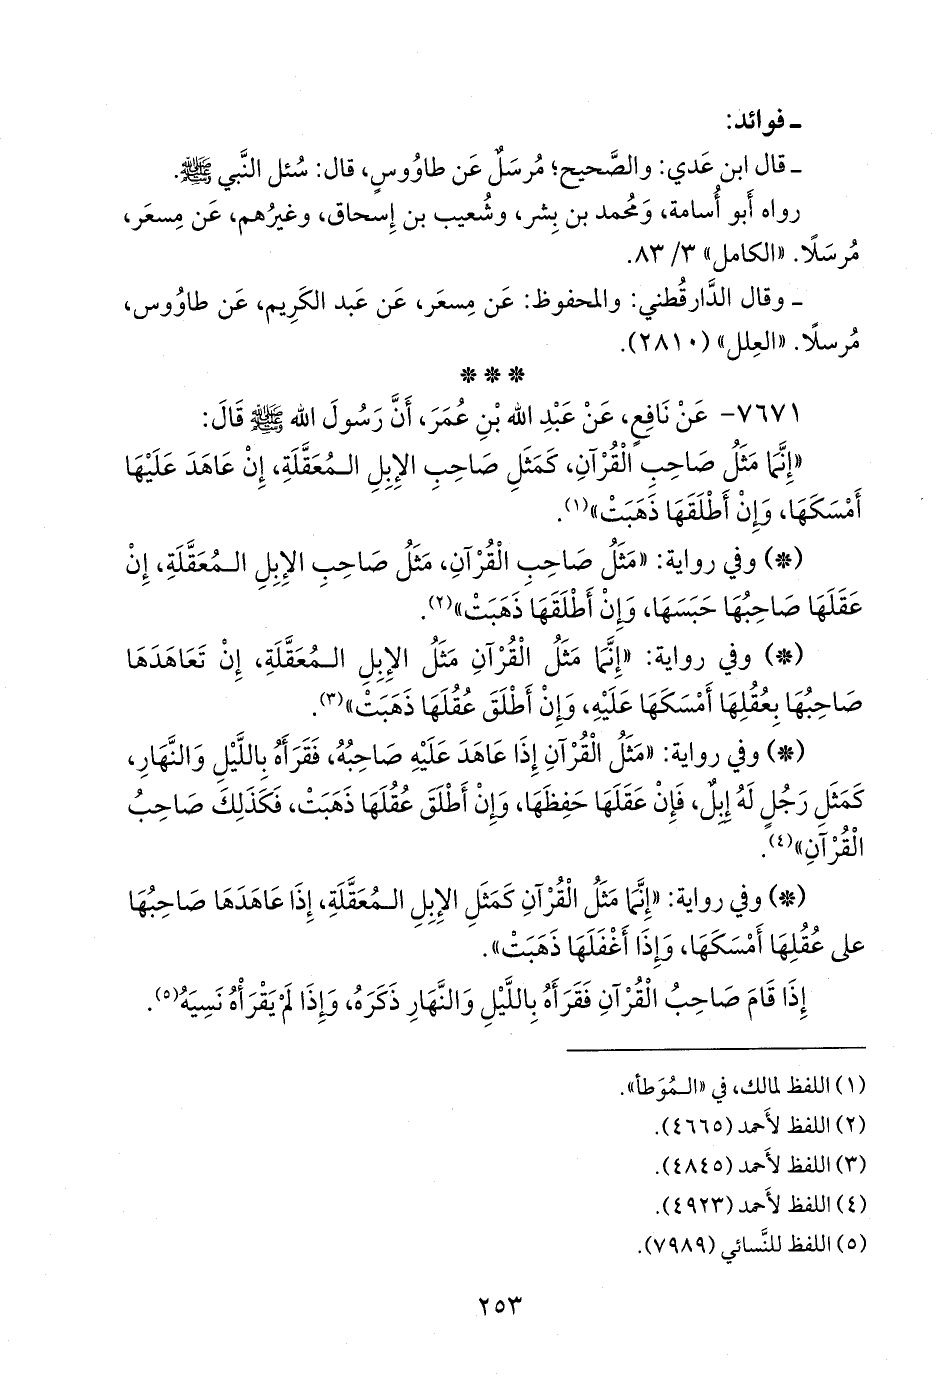 ـ فوائد:
ـ قال ابن عَدي: والصَّحيح؛ مُرسَلٌ عَن طاوُوسٍ، قال: سُئل النَّبي ﷺ.
رواه أَبو أُسامة، وَمُحمد بن بِشر، وشُعيب بن إِسحاق، وغيرُهم، عَن مِسعَر،
مُرسَلًا. «الكامل» ٣/ ٨٣.
ـ وقال الدَّارقُطني: والمحفوظ: عَن مِسعَر، عَن عَبد الكَرِيم، عَن طاوُوس،
مُرسلًا. «العِلل» (٢٨١٠).
* * *
٧٦٧١- عَنْ نَافِعٍ، عَنْ عَبْدِ الله بْنِ عُمَرَ، أَنَّ رَسُولَ الله ﷺ قَالَ:
«إِنَّمَا مَثَلُ صَاحِبِ الْقُرْآنِ، كَمَثَلِ صَاحِبِ الإِبِلِ الـمُعَقَّلَةِ، إِنْ عَاهَدَ عَلَيْهَا
أَمْسَكَهَا، وَإِنْ أَطْلَقَهَا ذَهَبَتْ»(١).
(*) وفي رواية: «مَثَلُ صَاحِبِ الْقُرْآنِ، مَثَلُ صَاحِبِ الإِبِلِ الـمُعَقَّلَةِ، إِنْ
عَقَلَهَا صَاحِبُهَا حَبَسَهَا، وَإِنْ أَطْلَقَهَا ذَهَبَتْ»(٢).
(*) وفي رواية: «إِنَّمَا مَثَلُ الْقُرْآنِ مَثَلُ الإِبِلِ الـمُعَقَّلَةِ، إِنْ تَعَاهَدَهَا
صَاحِبُهَا بِعُقُلِهَا أَمْسَكَهَا عَلَيْهِ، وَإِنْ أَطْلَقَ عُقُلَهَا ذَهَبَتْ»(٣).
(*) وفي رواية: «مَثَلُ الْقُرْآنِ إِذَا عَاهَدَ عَلَيْهِ صَاحِبُهُ، فَقَرَأَهُ بِاللَّيْلِ وَالنَّهَارِ،
كَمَثَلِ رَجُلٍ لَهُ إِبِلٌ، فَإِنْ عَقَلَهَا حَفِظَهَا، وَإِنْ أَطْلَقَ عُقُلَهَا ذَهَبَتْ، فَكَذَلِكَ صَاحِبُ
الْقُرْآنِ»(٤).
(*) وفي رواية: «إِنَّمَا مَثَلُ الْقُرْآنِ كَمَثَلِ الإِبِلِ الـمُعَقَّلَةِ، إِذَا عَاهَدَهَا صَاحِبُهَا
على عُقُلِهَا أَمْسَكَهَا، وَإِذَا أَغْفَلَهَا ذَهَبَتْ».
إِذَا قَامَ صَاحِبُ الْقُرْآنِ فَقَرَأَهُ بِاللَّيْلِ وَالنَّهَارِ ذَكَرَهُ، وَإِذَا لَمْ يَقْرَأْهُ نَسِيَهُ(٥).
(١) اللفظ لمالك، في «الـمُوَطأ».
(٢) اللفظ لأَحمد (٤٦٦٥).
(٣) اللفظ لأَحمد (٤٨٤٥).
(٤) اللفظ لأحمد (٤٩٢٣).
(٥) اللفظ للنَّسائي (٧٩٨٩).
٢٥٣